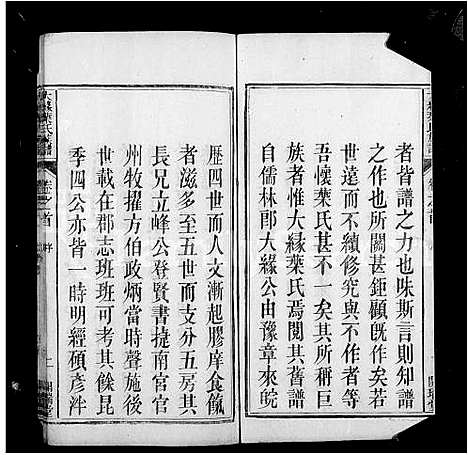 者皆譜之力也味斯言則知譜
之作也所關甚鉅顧既作矣若
世遠而不續修究與不作者等
吾懷葉氏甚不一矣而所稱巨
族者惟大緣葉氏焉閱其舊譜
自儒林郎大緣公由豫章來皖
歷四世而人文漸起膠庠食餼
者滋多至五世而支分五房其
長兄立峰公登賢書捷南宮官
州牧擢方伯政炳當時聲施後
世載在郡志班班可考其餘昆
季四公亦皆一時明經碩彥泮